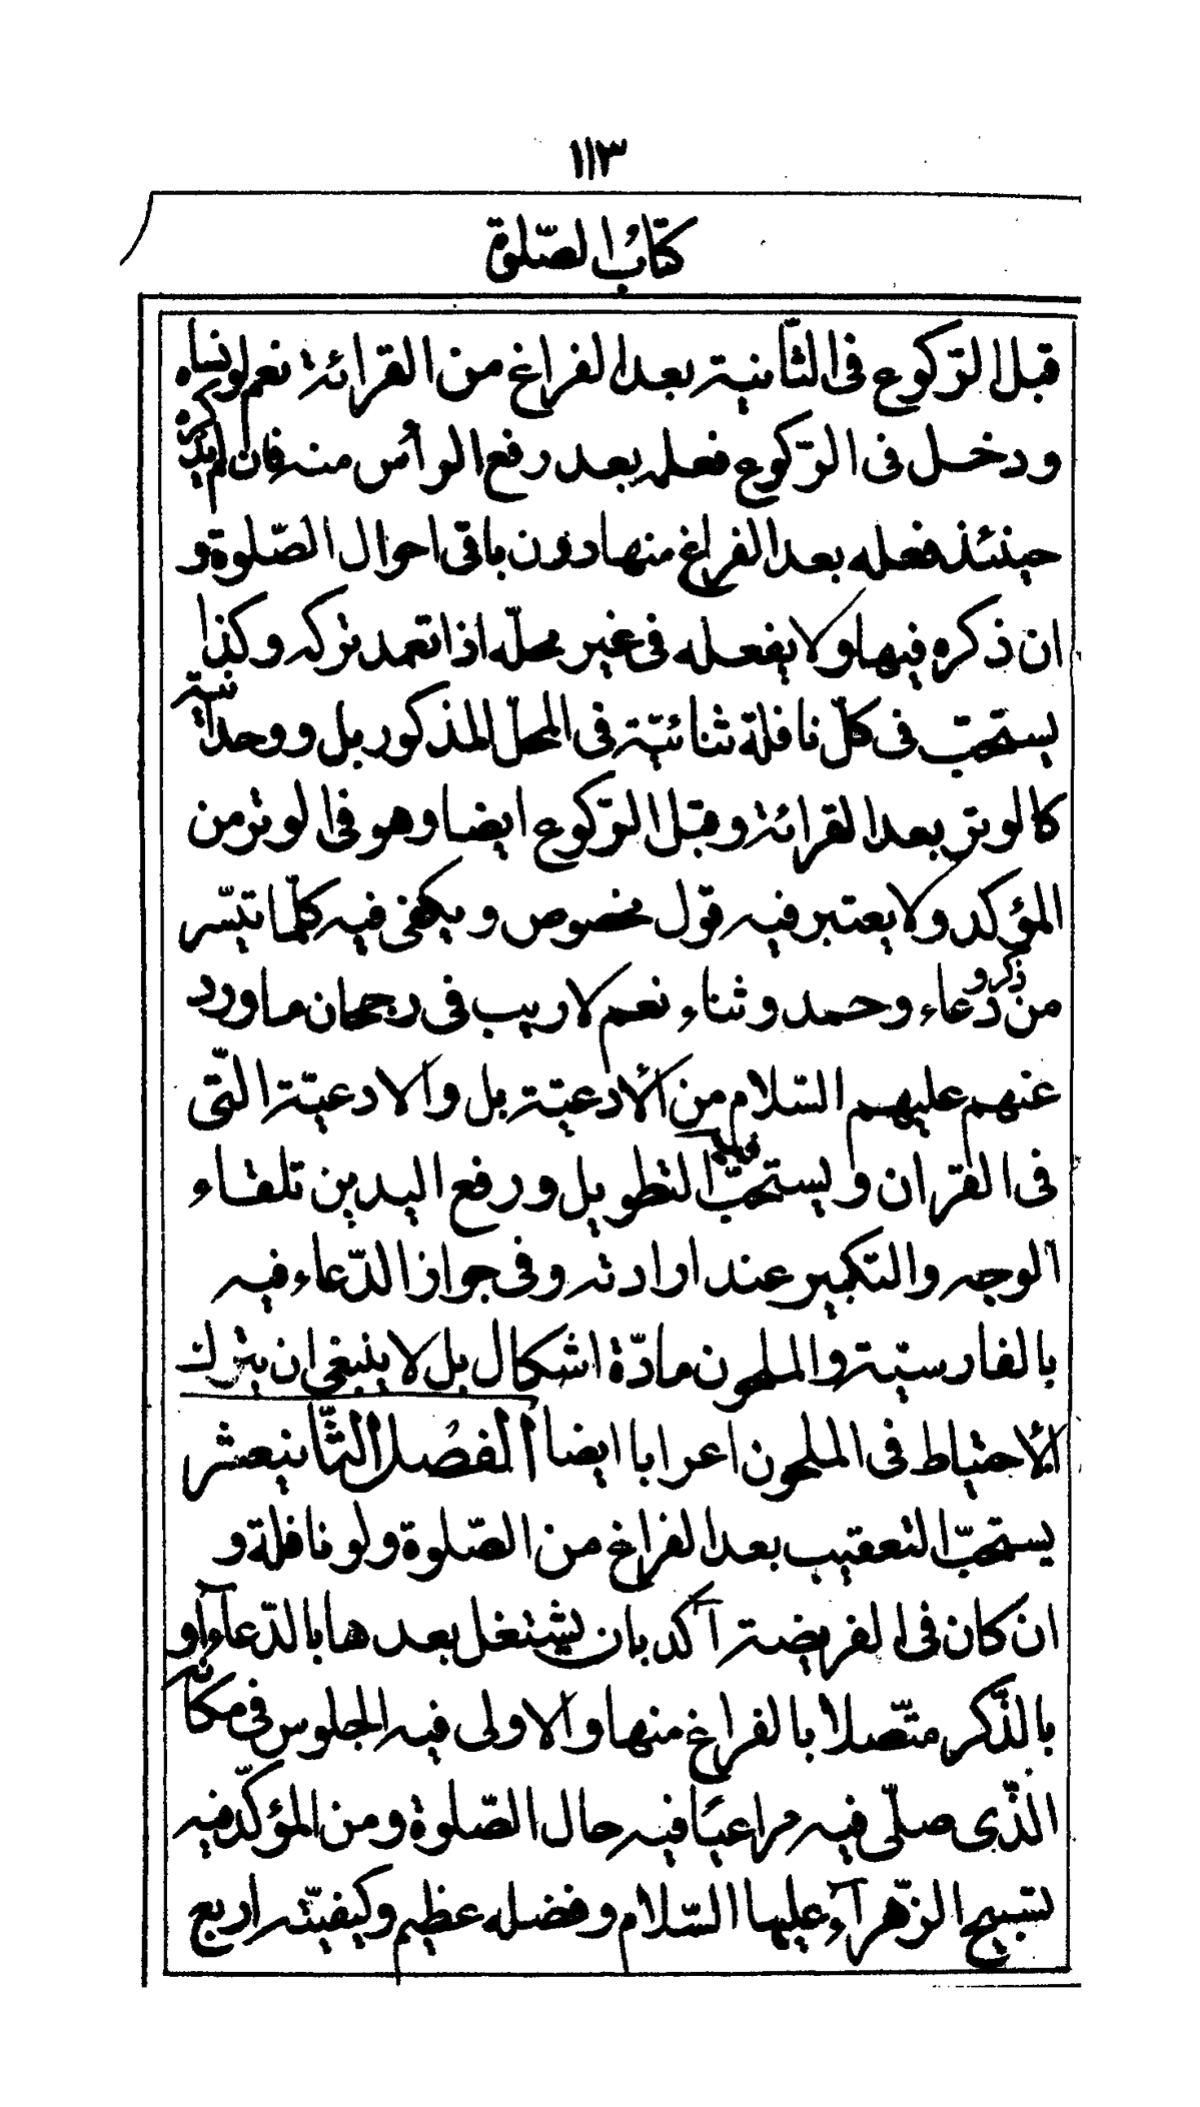 ١١٣
كتابُ الصّلوة
قبل الرّكوع فى الثّانية بعد الفراغ من القرائة نعم لو نساه
ودخل فى الرّكوع فعله بعد رفع الرأس منه فان لم يذكره
حينئذ فعله بعد الفراغ منها دون باقى احوال الصّلوة و
ان ذكره فيها ولا يفعله فى غير محلّه اذا تعمد تركه وكذا
يستحبّ فى كلّ نافلة ثنائيّة فى المحلّ المذكور بل ووحدانيّة
كالوتر بعد القرائة وقبل الرّكوع ايضا وهو فى الوتر من
المؤكد ولا يعتبر فيه قول مخصوص ويكفى فيه كلّما تيسّر
من ذكر و دعاء وحمد وثناء نعم لا ريب فى رجحان ما ورد
عنهم عليهم السّلام من الأدعيّة بل والادعيّة الّتى
فى القران ويستحبّ فيه التطويل ورفع اليدين تلقاء
الوجه والتكبير عند ارادته وفى جواز الدّعاء فيه
بالفارسيّة والملحون مادّة اشكال بل لا ينبغى ان يترك
الأحتياط فى الملحون اعرابا ايضا الفصل الثّانيعشر
يستحبّ التعقيب بعد الفراغ من الصّلوة ولو نافلة و
ان كان فى الفريضة آكد بان يشتغل بعدها بالدّعآء او
بالذّكر متّصلا بالفراغ منها والاولى فيه الجلوس فى مكانه
الّذى صلّى فيه مراعيًا فيه حال الصّلوة ومن المؤكّد فيه
تسبيح الزّهرآء عليها السّلام وفضله عظيم وكيفيّته اربع